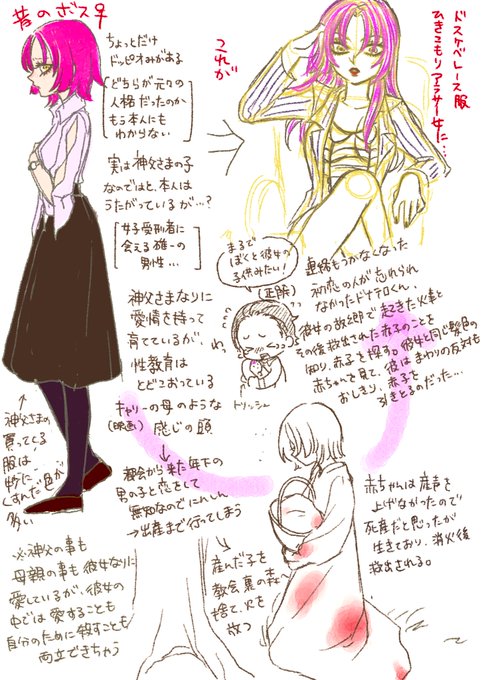 昔のボス♀
ちょっとだけ
ドッピオみがある
どちらが元々の
人格だったのか
もう本人にも
わからない
実は神父さまの子
なのではと、本人は
うたがっているが…?
女子受刑者に
会える唯一の
男性…
神父さまなりに
愛情を持って
育てているが、
性教育は
とどこおっている
キャリーの母のような
(映画)感じの頭
都会から来た年下の
男の子と恋をして
無知なのでにんしん
→出産まで行ってしまう
神父さまの
買ってくる
服は、
くすんだ色が
多い
※神父の事も
母親の事も彼女なりに
愛しているが、彼女の
中では愛することも
自分のために殺すことも
両立できちゃう
これが
ドスケベレース服
ひきこもりアラサー女に…
まるで
ぼくと彼女の
子供みたい!
(正解)
ドリッシュ
連絡もつかなくなった
初恋の人が忘れられ
なかったドナテロくん、
彼女の故郷で起きた火事と
その後救出された赤子のことを
知り、赤子を探す。彼女と同じ髪色の
赤ちゃんを見て、彼はまわりの反対も
おしきり、赤子を
引きとるのだった…
赤ちゃんは産声を
上げなかったので
死産だと思ったが
生きており、消火後
救出される。
産んだ子を
教会裏の森に
捨て、火を
放つ